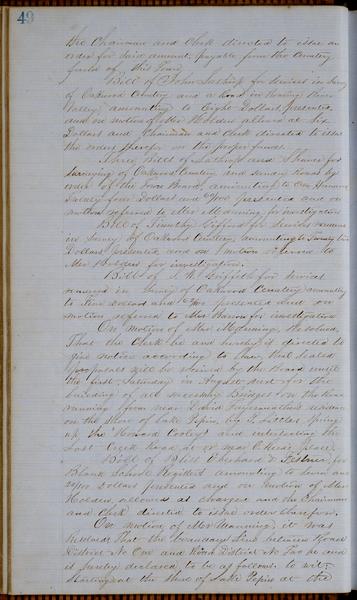 49
the Chairman and Clerk directed to issue an
order for said amount, payable from the Cemetery
funds of this Town
Bill of John for Services in Survey
of Oakwood Cemetery and a Road in
Valley amounting to Eight Dollars presented
and on motion of Mr Holden allowed at Six
Dollars and Chairman and Clerk directed to issue
the order therefor on the proper funds.
Three Bills of and for
Surveying of Oakwood Cemetery and sundry Roads by
order of the Town Board, amounting to One Hundred
Twenty four Dollars and /100 presented and on
motion referred to Mr Manning for investigation
Bill of Timothy for Services rendered
in Survey of Oakwood Cemetery, amounting to Twenty two
Dollars presented, and on motion referred to
Mr Holden for investigation.
Bill of J. W. Griffith for Services
rendered in Survey of Oakwood Cemetery amounting
to Nine dollars and /100 presented and on
motion referred to Mr for investigation
On motion of Mr Manning, Resolved,
That the Clerk be and hereby is directed to
give notice according to Law, that Sealed
Proposals will be received by the Board until
the first Saturday in August next for the
building of all necessary Bridges on the Road
running from near David residence
on the Shore of Lake Pepin, by T. Littles Spring
up the and intersecting the
Lost Creek Road at or near these place.
Bill of for
Blank School Registers amounting to Seven and
/100 dollars presented and on motion of Mr
Holden, allowed as charged and the Chairman
and Clerk directed to issue order therefor.
On motion of Mr Manning, it was
Resolved: That the boundary line between Road
District No One and Road District No Two be and
is hereby declared to be as follows to wit:
Starting at the Shore of Lake Pepin at the